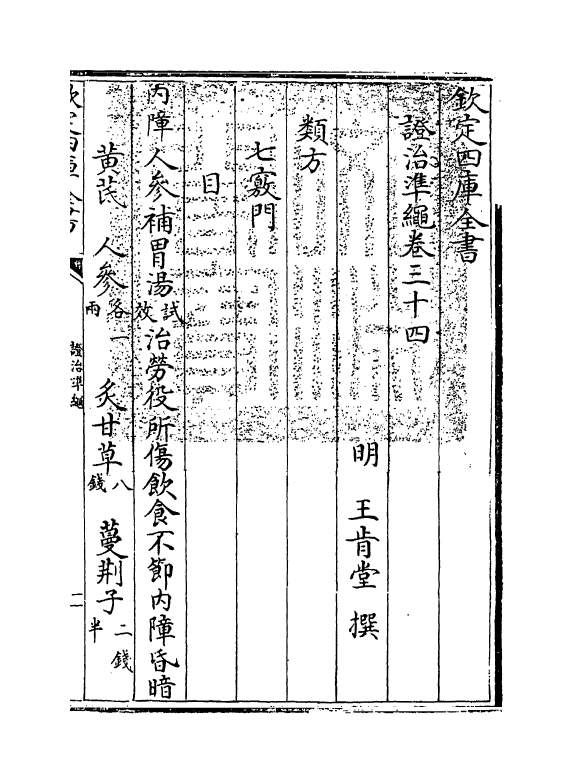 欽定四庫全書
證治準繩卷三十四
明 王肯堂 撰
類方
七竅門
目
内障人參補胃湯試效治勞役所傷飲食不節内障昏暗
黄芪 人參各一兩 炙甘草八錢 蔓荆子二錢半
欽定四庫全書
證治準繩